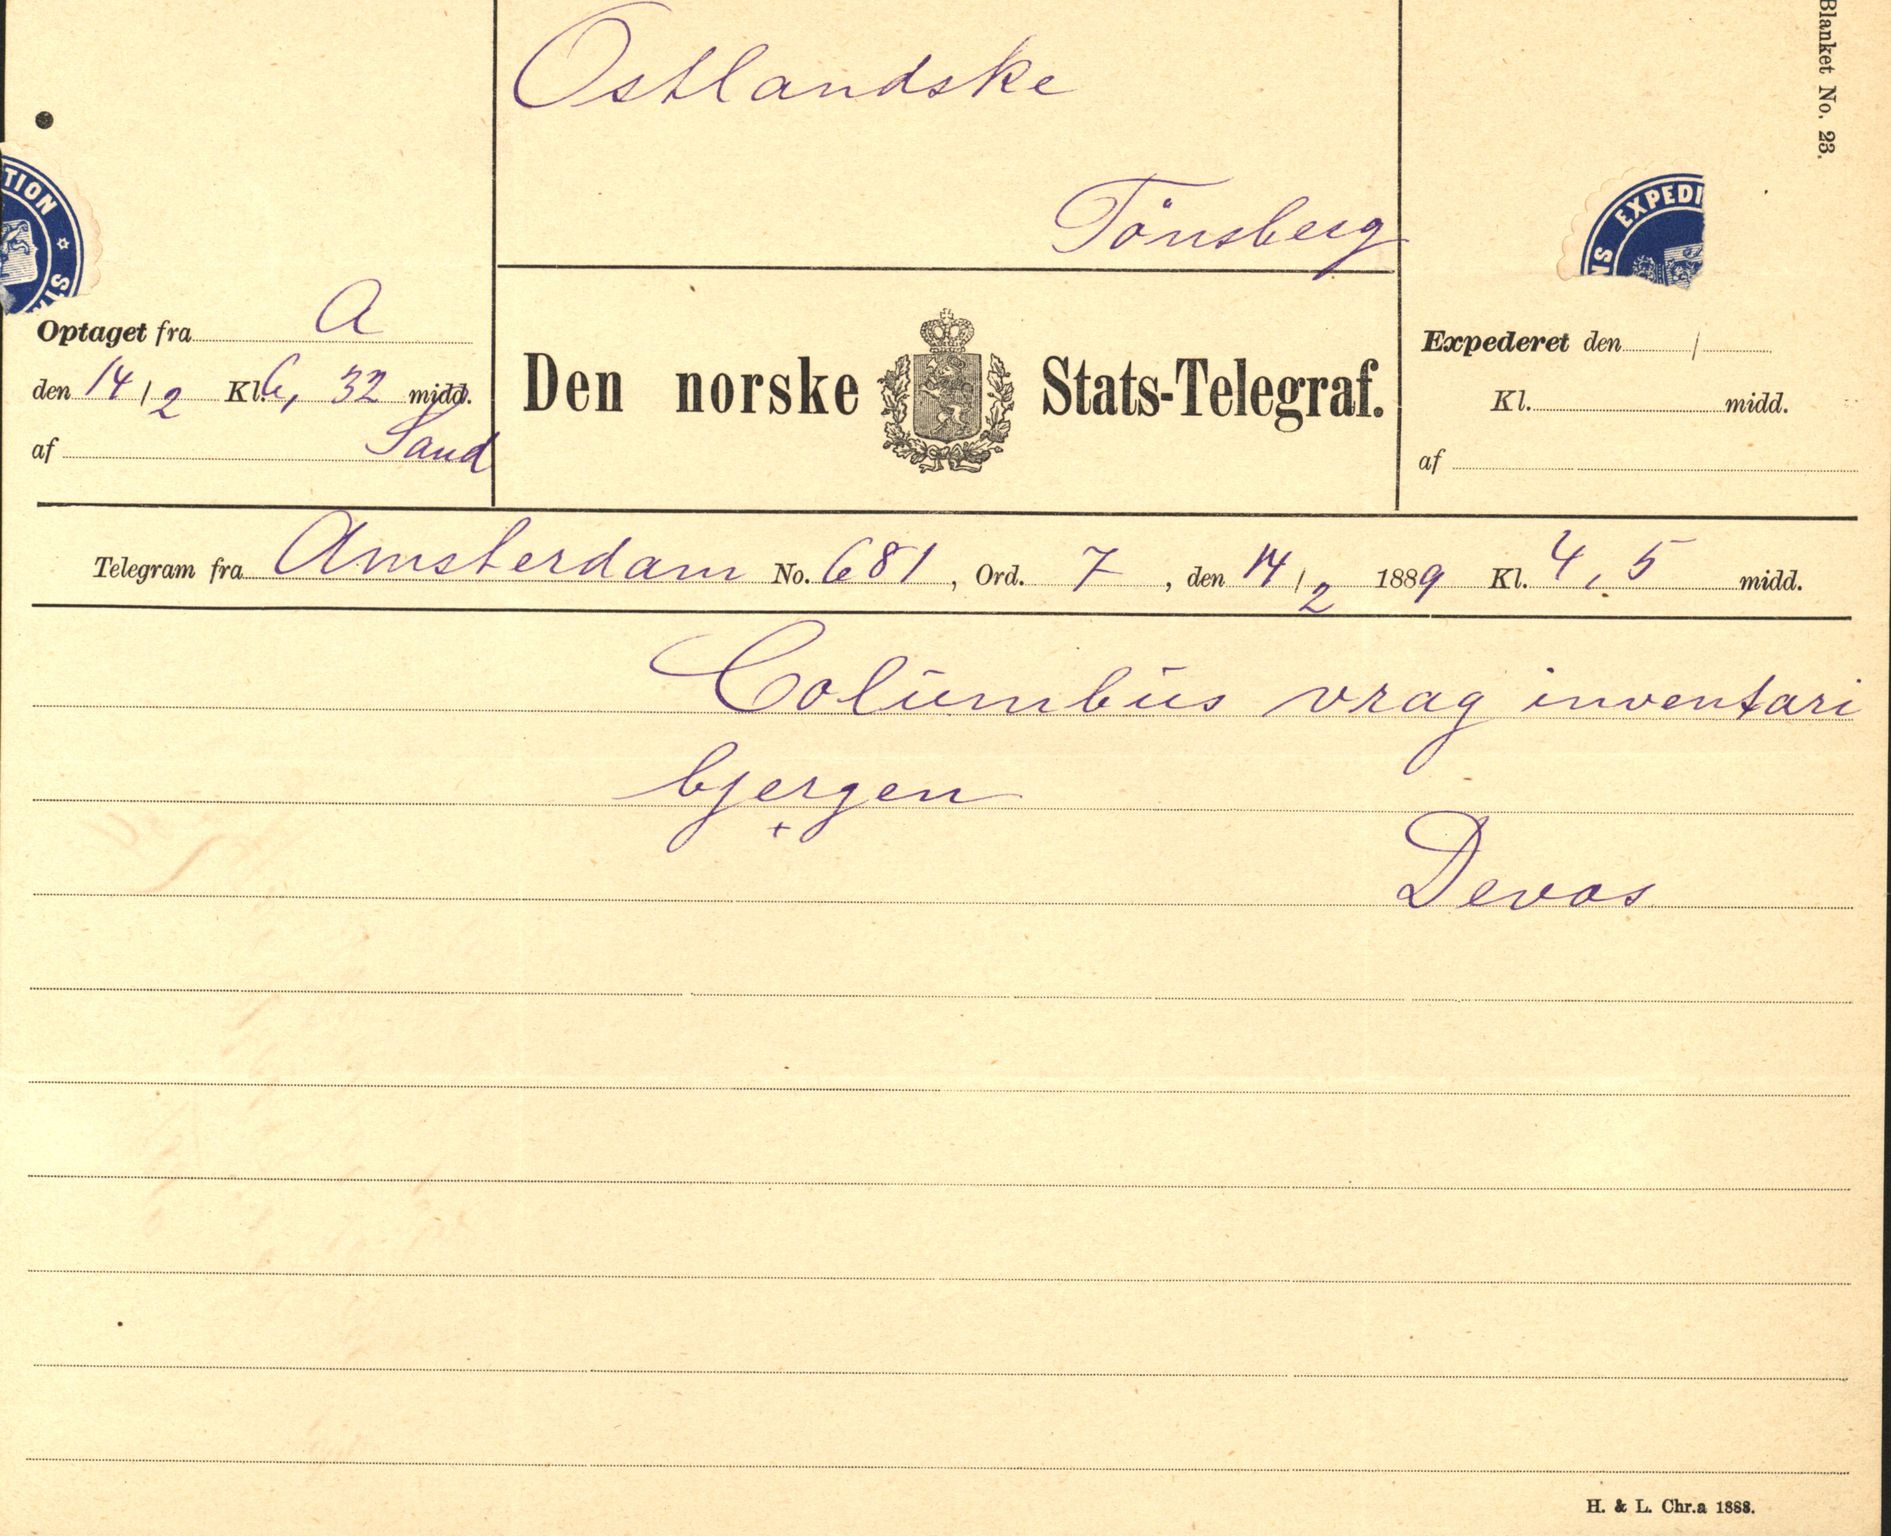 Blanket No. 23.
Ostlandske
Tönsberg
TION ST
S EXPEDI
Optaget fra A
den 14/2 Kl. 6, 32 midd.
af Sand
Den norske Stats-Telegraf.
Expederet den /
Kl. midd.
af
Telegram fra Amsterdam No. 681, Ord. 7, den 14/2 1889 Kl. 4, 5 midd.
Columbus vrag inventari
bjergen
+
Devos
H. & L. Chr.a 1888.